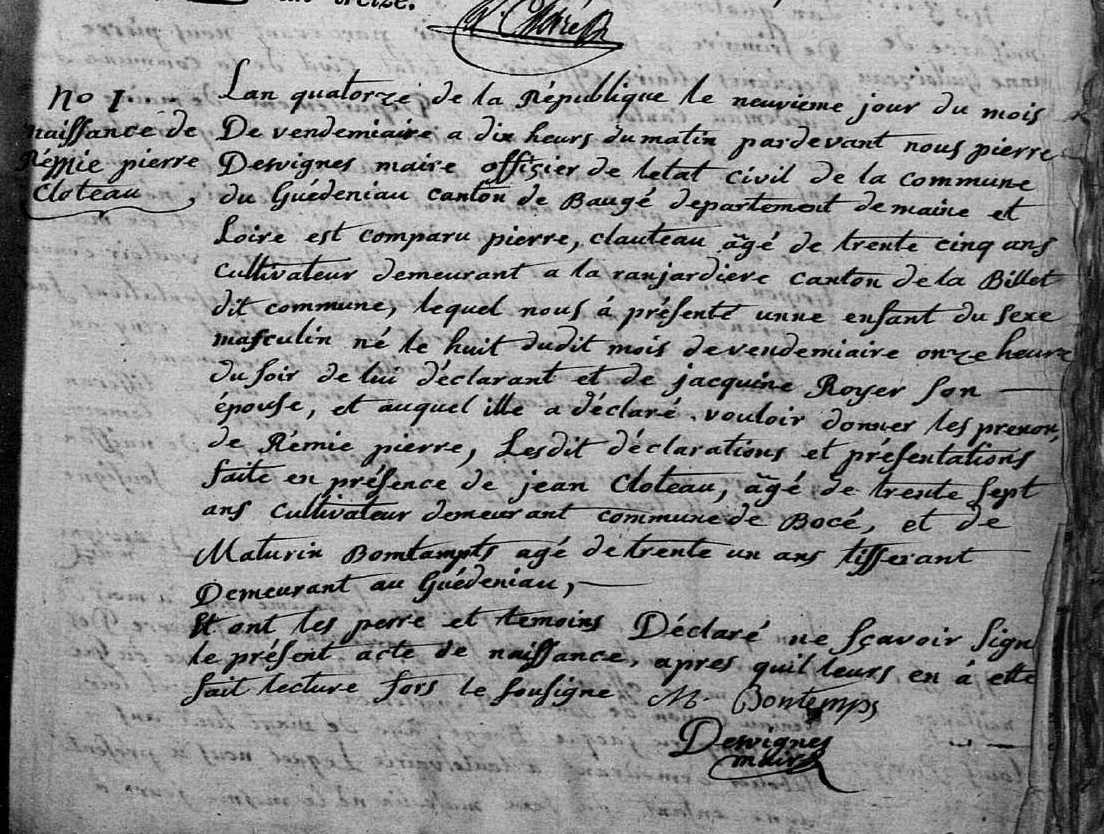 treize.
No 1.
naissance de
Rémie pierre
Cloteau,
Lan quatorze de la République le neuvieme jour du mois
De vendemiaire a dix heurs du matin pardevant nous pierre
Desvignes maire officier de letat civil de la commune
du Guédeniau canton de Baugé departement de maine et
Loire est comparu pierre, clauteau âgé de trente cinq ans
Cultivateur demeurant a la ranjardiere canton de la Billet
dit commune, lequel nous á présenté unne enfant du sexe
masculin né le huit dudit mois de vendemiaire onze heure
du soir de lui déclarant et de jacquine Royer son
épouse, et auquel ille a déclaré vouloir donner les prenon,
de Rémie pierre, Lesdit déclarations et présentations
faite en présence de jean Cloteau, âgé de trente sept
ans Cultivateur demeurant commune de Bocé, et de
Maturin Bomtampts agé de trente un ans tisserant
Demeurant au Guédeniau,
Et ont les perre et temoins Déclaré ne sçavoir sign
le présent acte de naissance, apres quil leurs en á etté
fait lecture fors le sousigne M. Bontemps
Desvignes
maire